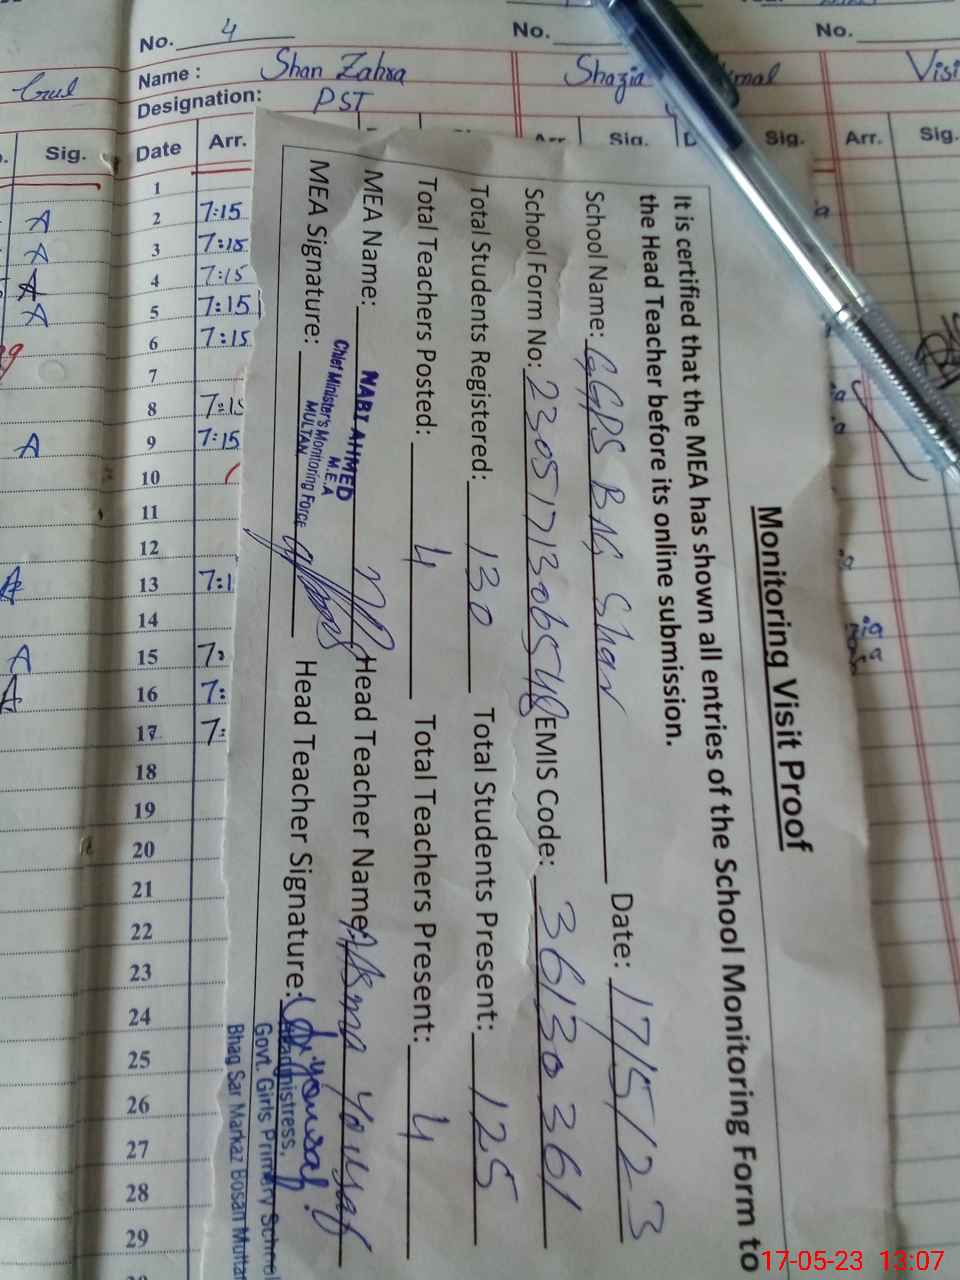 No. 4
No.
No.
Name :
Shan Zahra
Shazia
Designation:
PST
Gul
Sig.
Date
Arr.
Arr.
Sig.
Sig.
Arr.
Sig.
1
2 7:15
3 7:15
4 7:15
5 7:15
6 7:15
7
8 7:15
9 7:15
10
11
12
13 7:1
14
15 7:
16 7:
17 7:
18
19
20
21
22
23
24
25
26
27
28
29
Monitoring Visit Proof
It is certified that the MEA has shown all entries of the School Monitoring Form to
the Head Teacher before its online submission.
School Name: GGPS BAG Shar Date: 17/5/23
School Form No: EMIS Code: 36130361
Total Students Registered: 130 Total Students Present: 125
Total Teachers Posted: 4 Total Teachers Present: 4
MEA Name: Head Teacher Name: Asma Yousaf
NABI AHMED
M.E.A
Chief Minister's Monitoring Force
MULTAN
MEA Signature: Head Teacher Signature:
Headmistress,
Govt. Girls Primary School
Bhag Sar Markaz Bosan Multan
17-05-23 13:07